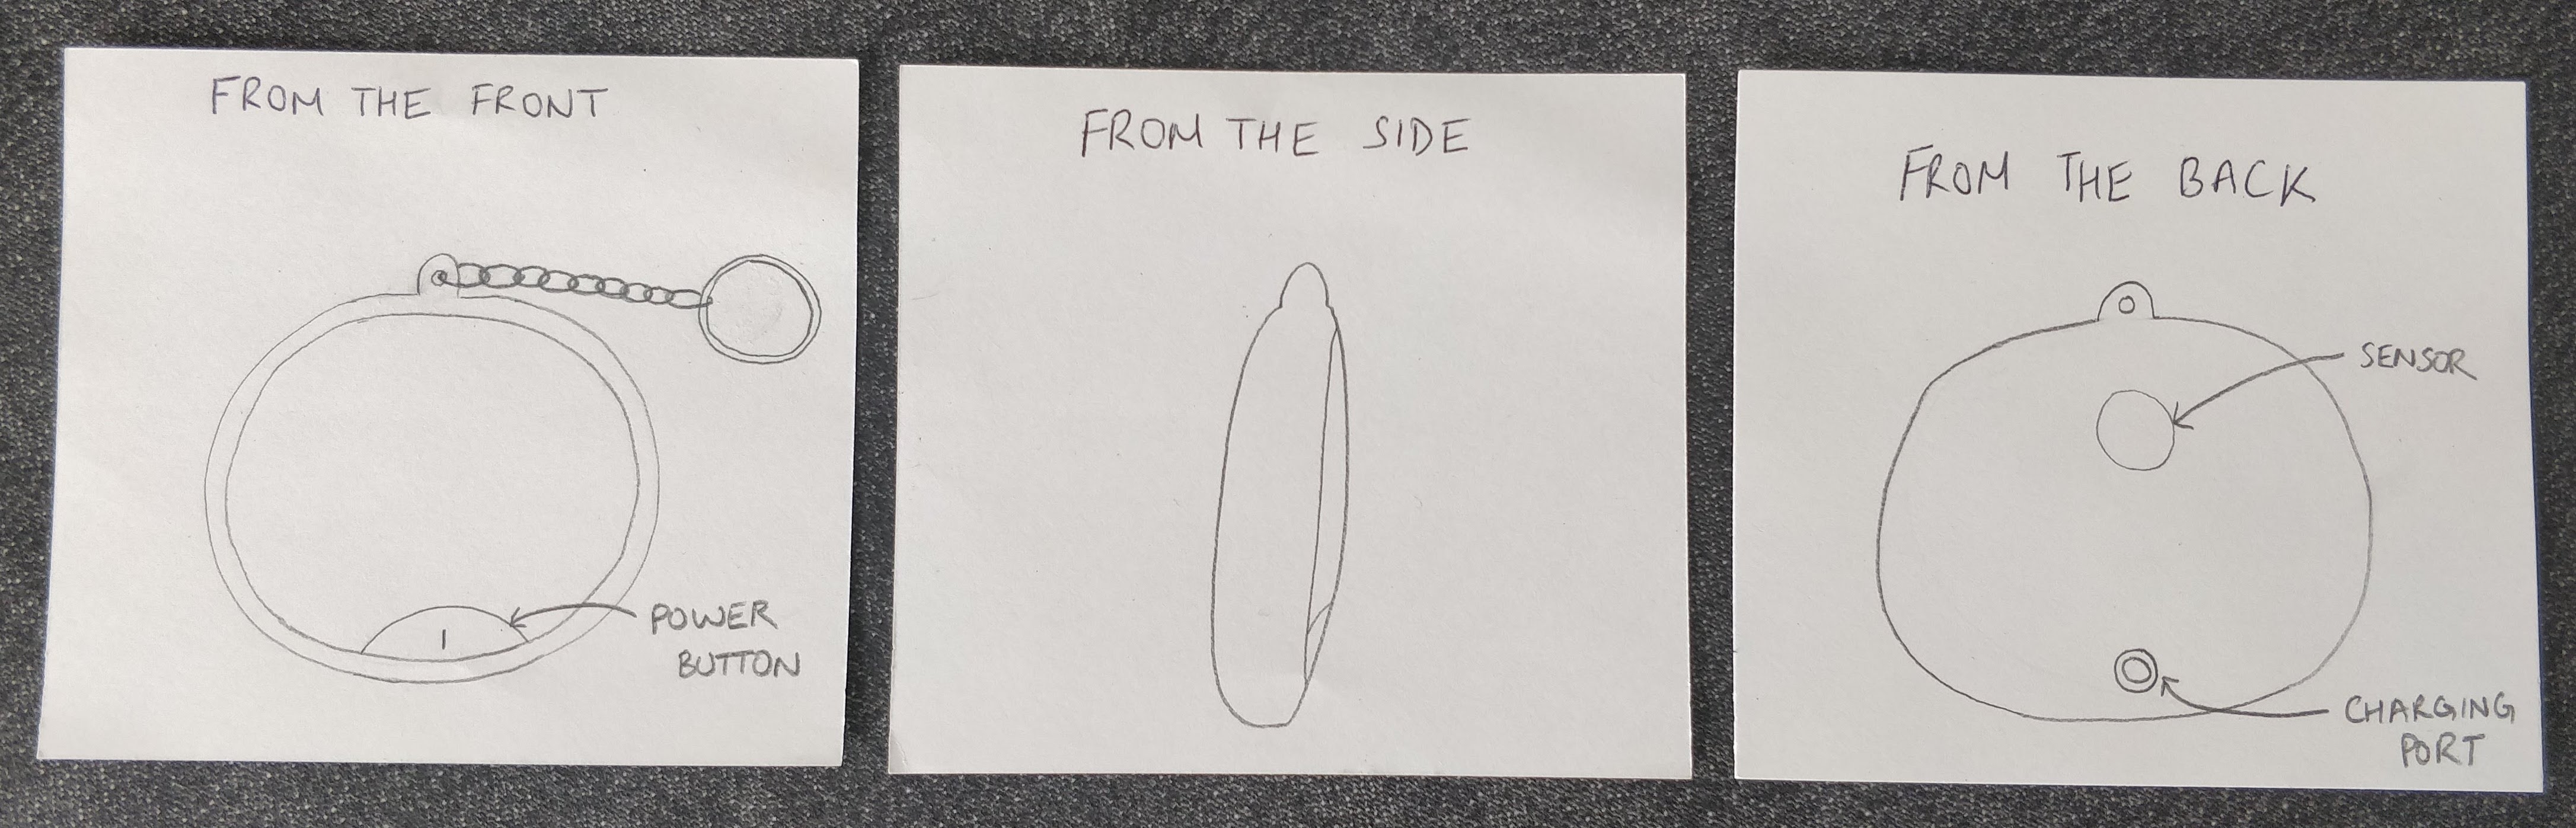 FROM THE FRONT
POWER
BUTTON
FROM THE SIDE
FROM THE BACK
SENSOR
CHARGING
PORT